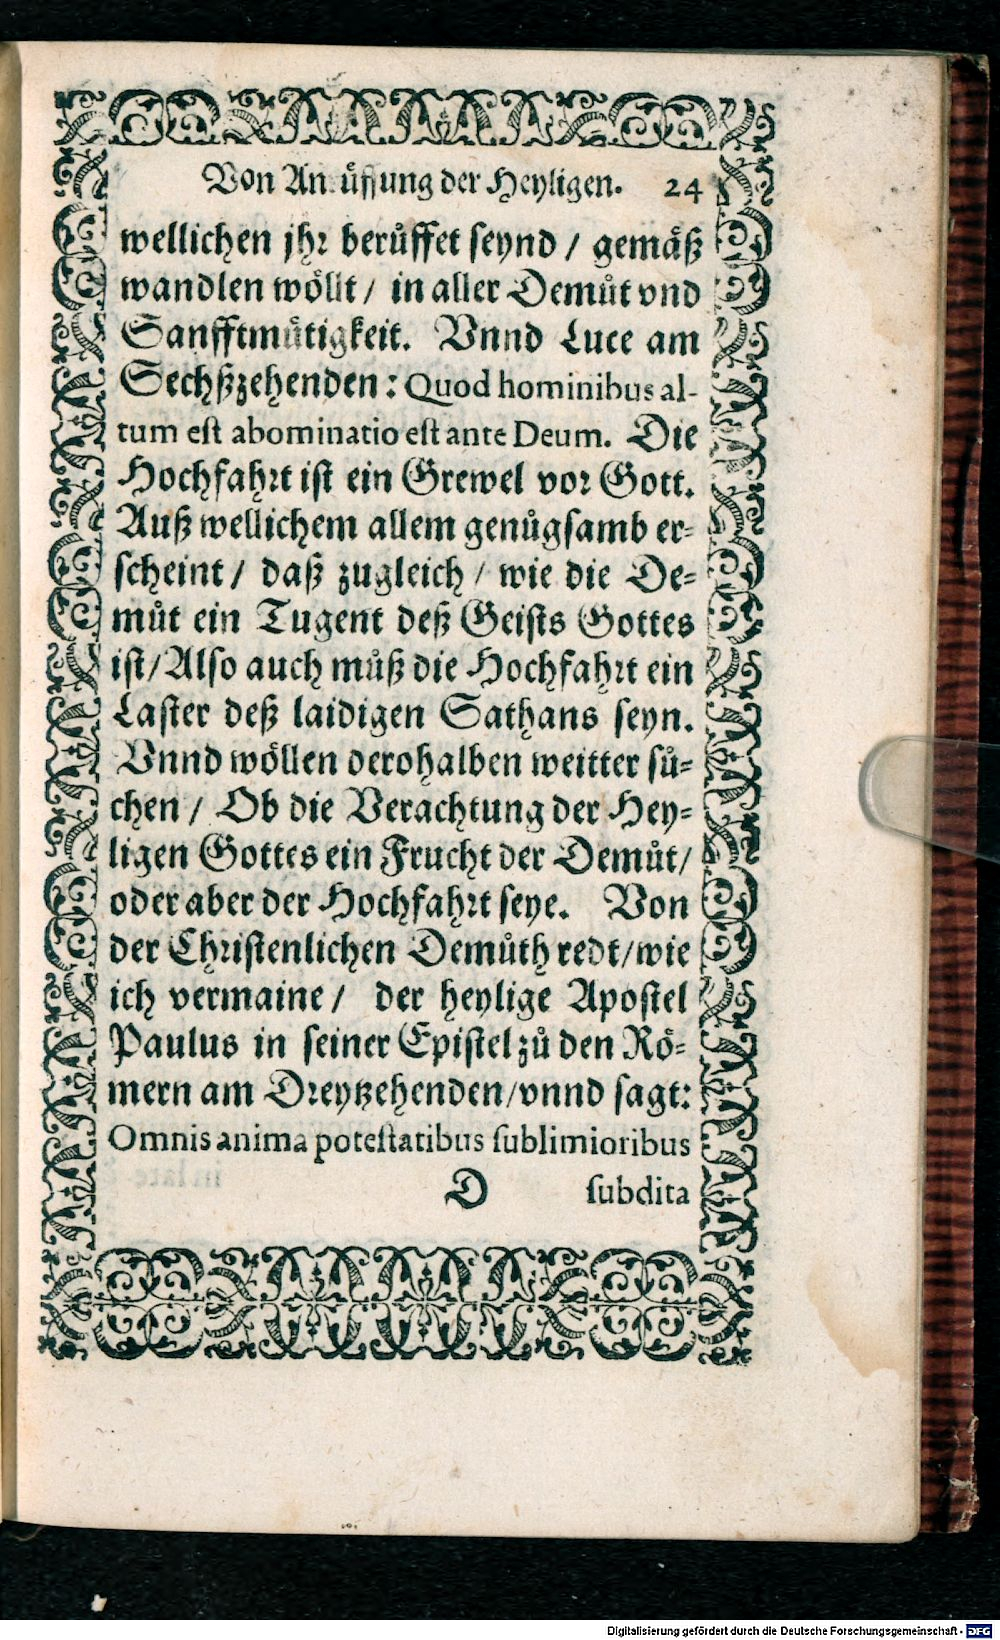 Von Anrüffung der Heyligen. 24
wellichen jhr berůffet seynd / gemäß
wandlen wöllt / in aller Demůt vnd
Sanfftmütigkeit. Vnnd Luce am
Sechßzehenden : Quod hominibus al-
tum est abominatio est ante Deum. Die
Hochfahrt ist ein Grewel vor Gott.
Auß wellichem allem genůgsamb er-
scheint / daß zugleich / wie die De-
můt ein Tugent deß Geists Gottes
ist / Also auch můß die Hochfahrt ein
Laster deß laidigen Sathans seyn.
Vnnd wöllen derohalben weitter sů-
chen / Ob die Verachtung der Hey-
ligen Gottes ein Frucht der Demůt /
oder aber der Hochfahrt seye. Von
der Christenlichen Demůth redt / wie
ich vermaine / der heylige Apostel
Paulus in seiner Epistel zů den Rö-
mern am Dreytzehenden / vnnd sagt:
Omnis anima potestatibus sublimioribus
D subdita
Digitalisierung gefördert durch die Deutsche Forschungsgemeinschaft - DFG